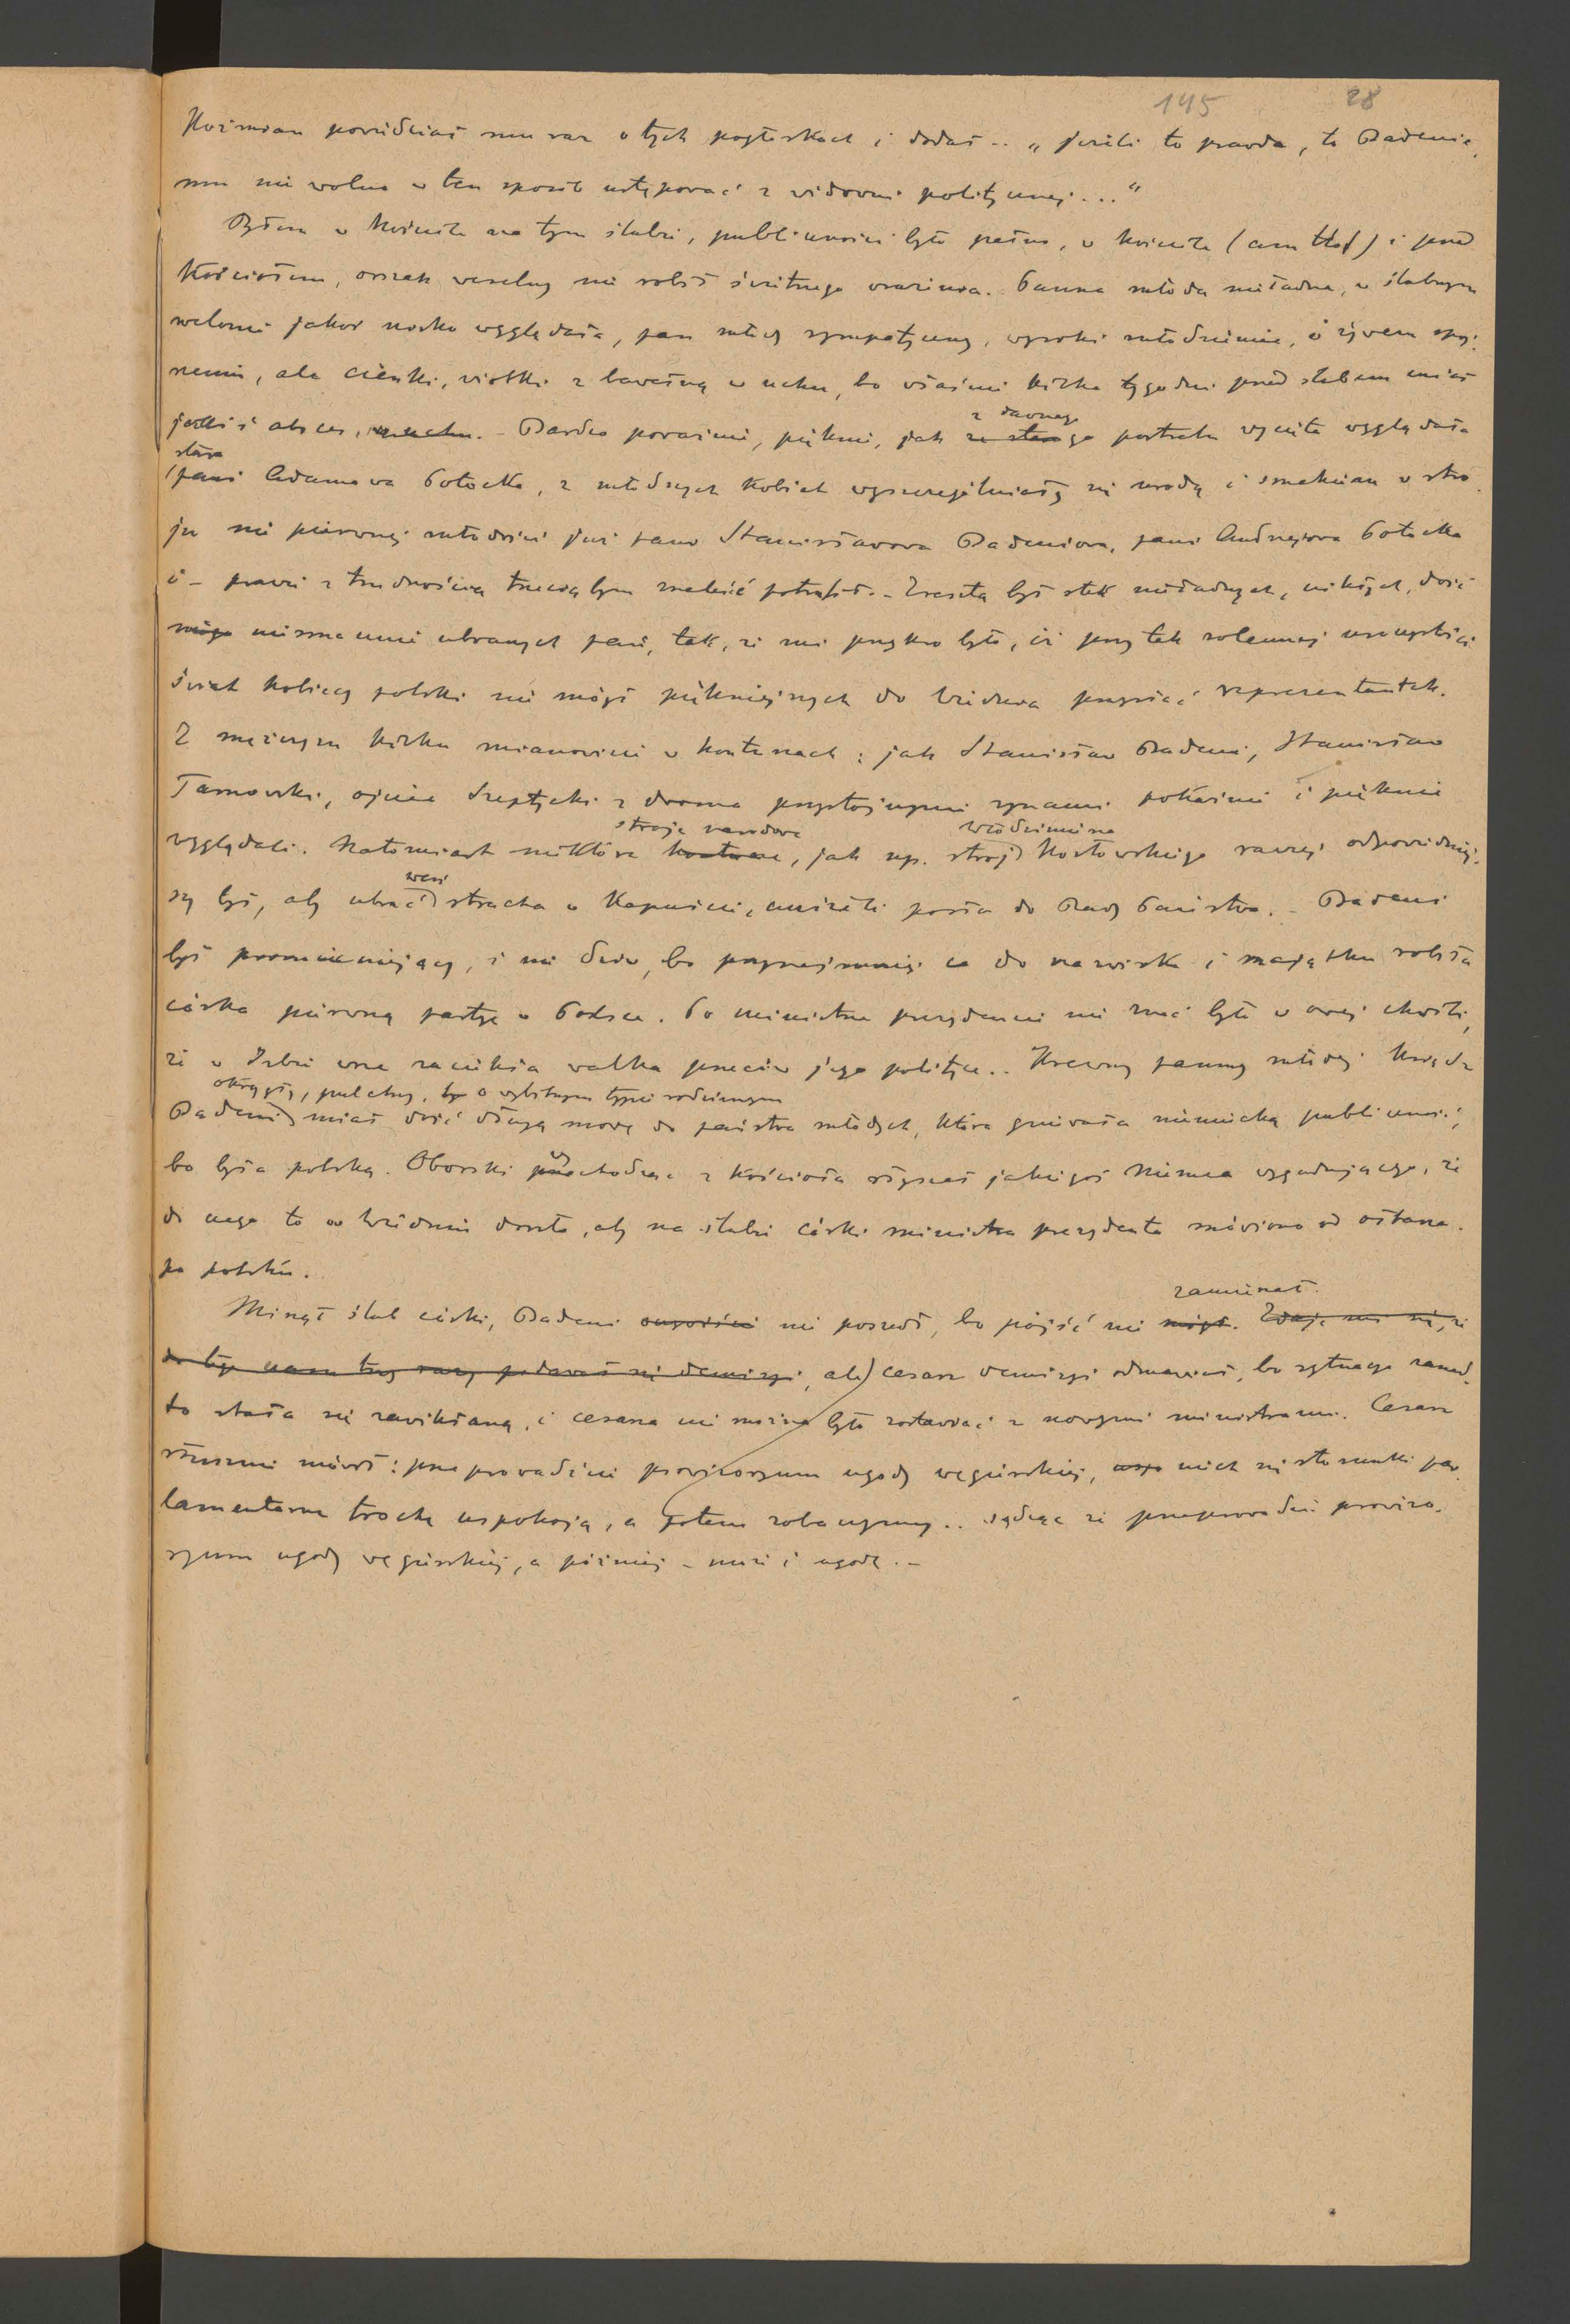 145 28
Koźmian powiedział mu raz o tych pogłoskach i dodał.. „jeżeli to prawda, to Badenie,
mu nie wolno w ten sposób ustępować z widowni politycznej..."
Byłem w kościele na tym ślubie, publiczności było pełno, w kościele (am Hof) i przed
kościołem, orszak weselny nie robił świetnego wrażenia. Panna młoda nieładna, w ślubnym
welonie jakoś nosko wyglądała, pan młody sympatyczny, wysoki młodzieniec, o żywem spoj-
rzeniu, ale cienki, wiotki z bawełną w uchu, bo właśnie kilka tygodni przed ślubem miał
jakiś absces, w uchu. - Bardzo poważnie, pięknie, jak ze starego z dawnego portretu wycięta wyglądała
stara pani Adamowa Potocka, z młodszych kobiet wyszczególniały się urodą i smakiem w stro-
ju nie pierwszej młodości już pani Stanisławowa Badeniowa, pani Andrzejowa Potocka
i - prawie z trudnością trzecią bym znaleźć potrafił. - Zresztą był stek nieładnych, nikłych, dość
niesmacznie ubranych pań, tak, że mi przykro było, iż przy tak solennej uroczystości
świat kobiecy polski nie mógł piękniejszych do Wiednia przysłać reprezentantek.
Z mężczyzn kilku mianowicie w kontuszach: jak Stanisław Badeni, Stanisław
Tarnowski, ojciec Szeptycki z dwoma przystojnymi synami poważnie i pięknie
wyglądali. Natomiast niektóre kontusze stroje narodowe, jak np. strój Włodzimierza Kozłowskiego raczej odpowiedniej-
szy był, aby ubrać weń stracha w kapuście, aniżeli posła do Rady Państwa. - Badeni
był promieniejący, i nie dziw, bo przynajmniej co do nazwiska i majątku robiła
córka pierwszą partyę w Polsce. Po ministrze prezydencie nie znać było w owej chwili,
że w Izbie wre zaciekła walka przeciw jego polityce.. Krewny panny młodej ksiądz
Badeni okrągły, pulchny, o wybitnym typie rodzinnym miał dość długą mowę do państwa młodych, która gniewała niemiecką publiczność,
bo była polską. Oborski wychodząc z kościoła słyszał jakiegoś Niemca wygadującego, że
do czego to w Wiedniu doszło, aby na ślubie córki ministra prezydenta mówiono od ołtarza
po polsku.
Minął ślub córki, Badeni nie poszedł, bo pójść nie mógł zamierzał. Zdaje mi się, że
do tego czasu trzy razy podawał się demisyi, ale cesarz demisyi odmawiał, bo sytuacya zanad-
to stała się zawikłaną, i cesarza nie można było zostawiać z nowymi ministrami. Cesarz
słusznie mówił: przeprowadźcie prowizoryum ugody węgierskiej, niech się stosunki par-
lamentarne trochę uspokoją, a potem zobaczymy.. sądząc że przeprowadzi prowizo-
ryum ugody węgierskiej, a później - może i ugodę. -